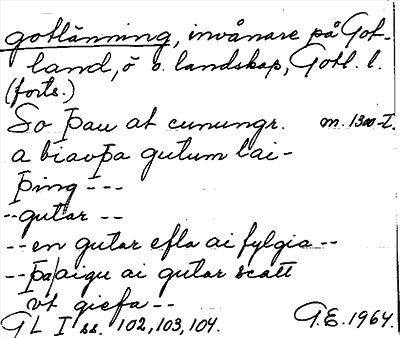 gotlänning, invånare på Got-
land, ö o. landskap, Gotl. l.
(forts.)
So þau at cunungr. m. 1300-t.
a biauþa gutum lai-
þing ---
--gutar --
--en gutar efla ai fylgia--
--þa aigu ai gutar scatt
vt giefa--
GL I ss. 102, 103, 104. G.E. 1964.